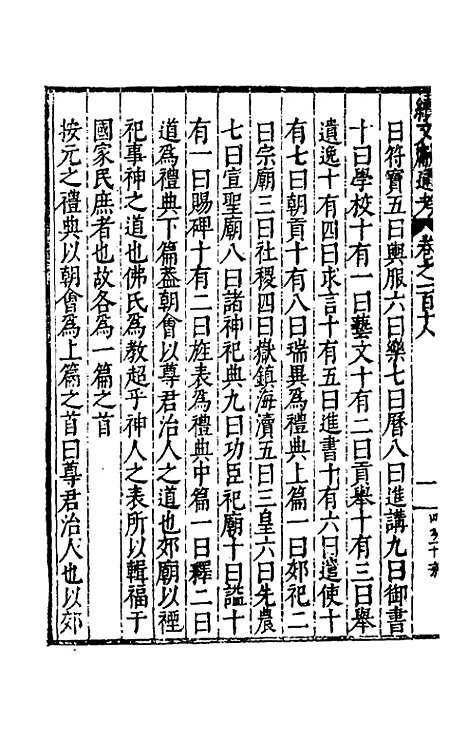 續文獻通考 卷之一百十八
曰符寶五曰輿服六曰樂七曰曆八曰進講九曰御書
十曰學校十有一曰藝文十有二曰貢舉十有三曰舉
遺逸十有四曰求言十有五曰進書十有六曰遣使十
有七曰朝貢十有八曰瑞異爲禮典上篇一曰郊祀二
曰宗廟三曰社稷四曰嶽鎮海瀆五曰三皇六曰先農
七曰宣聖廟八曰諸神祀典九曰功臣祀廟十曰謚十
有一曰賜碑十有二曰旌表爲禮典中篇一曰釋二曰
道爲禮典下篇蓋朝會以尊君治人之道也郊廟以禋
祀事神之道也佛氏爲教超乎神人之表所以輯福于
國家民庶者也故各爲一篇之首
按元之禮典以朝會爲上篇之首曰尊君治人也以郊